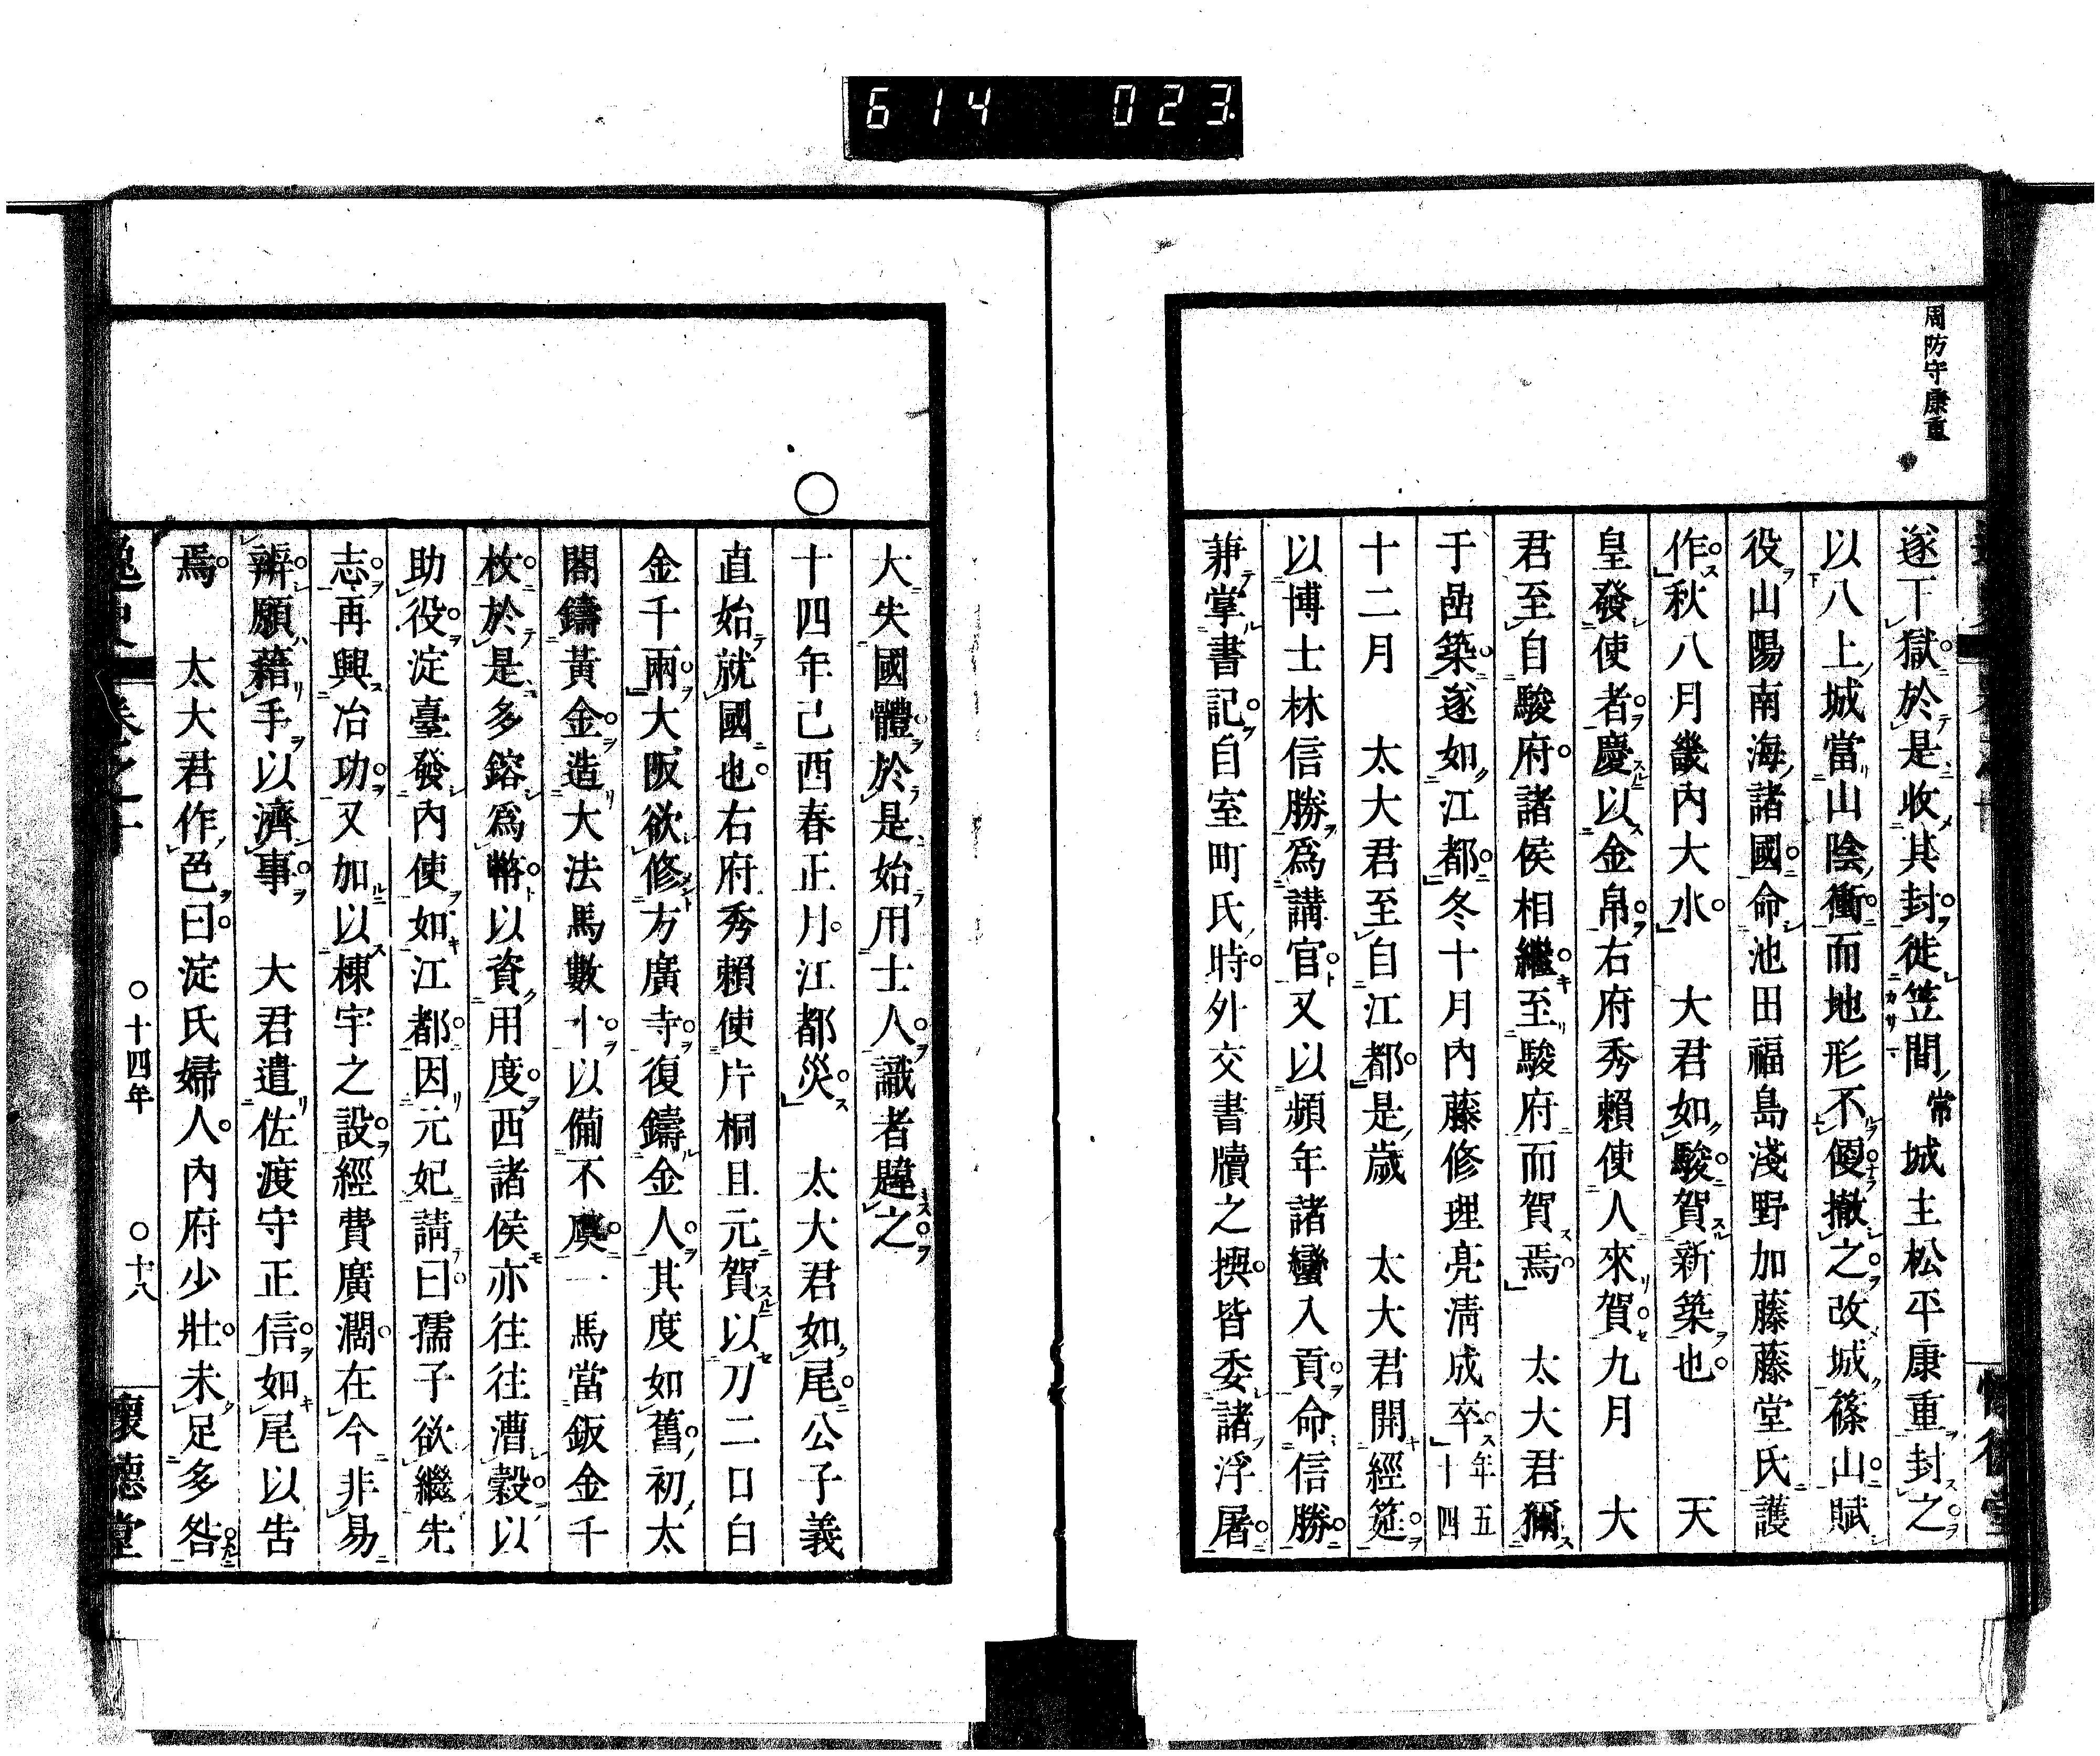 614 023
周防守康重
遂下獄於是收其封徙笠間常城主松平康重封之
以八上城當山陰衝而地形不便撤之改城篠山賦
役山陽南海諸國命池田福島淺野加藤藤堂氏護
作秋八月畿內大水 大君如駿賀新築也 天
皇發使者慶以金帛右府秀賴使人來賀九月 大
君至自駿府諸侯相繼至駿府而賀焉 太大君獮
于嵒築遂如江都冬十月內藤修理亮淸成卒年五十四
十二月 太大君至自江都是歲 太大君開經筵
以博士林信勝爲講官又以頻年諸蠻入貢命信勝
兼掌書記自室町氏時外交書牘之撰皆委諸浮屠
大失國體於是始用士人識者韙之
○
十四年己酉春正月江都災 太大君如尾公子義
直始就國也右府秀賴使片桐且元賀以刀二口白
金千兩大阪欲修方廣寺復鑄金人其度如舊初太
閤鑄黃金造大法馬數十以備不虞一馬當鈑金千
枚於是多鎔爲幣以資用度西諸侯亦往往漕穀以
助役淀臺發內使如江都因元妃請曰孺子欲繼先
志再興冶功又加以棟宇之設經費廣濶在今非易
辨願藉手以濟事 大君遣佐渡守正信如尾以告
焉 太大君作色曰淀氏婦人內府少壯未足多咎
逸史 卷之十 ○十四年 ○十八 懷德堂